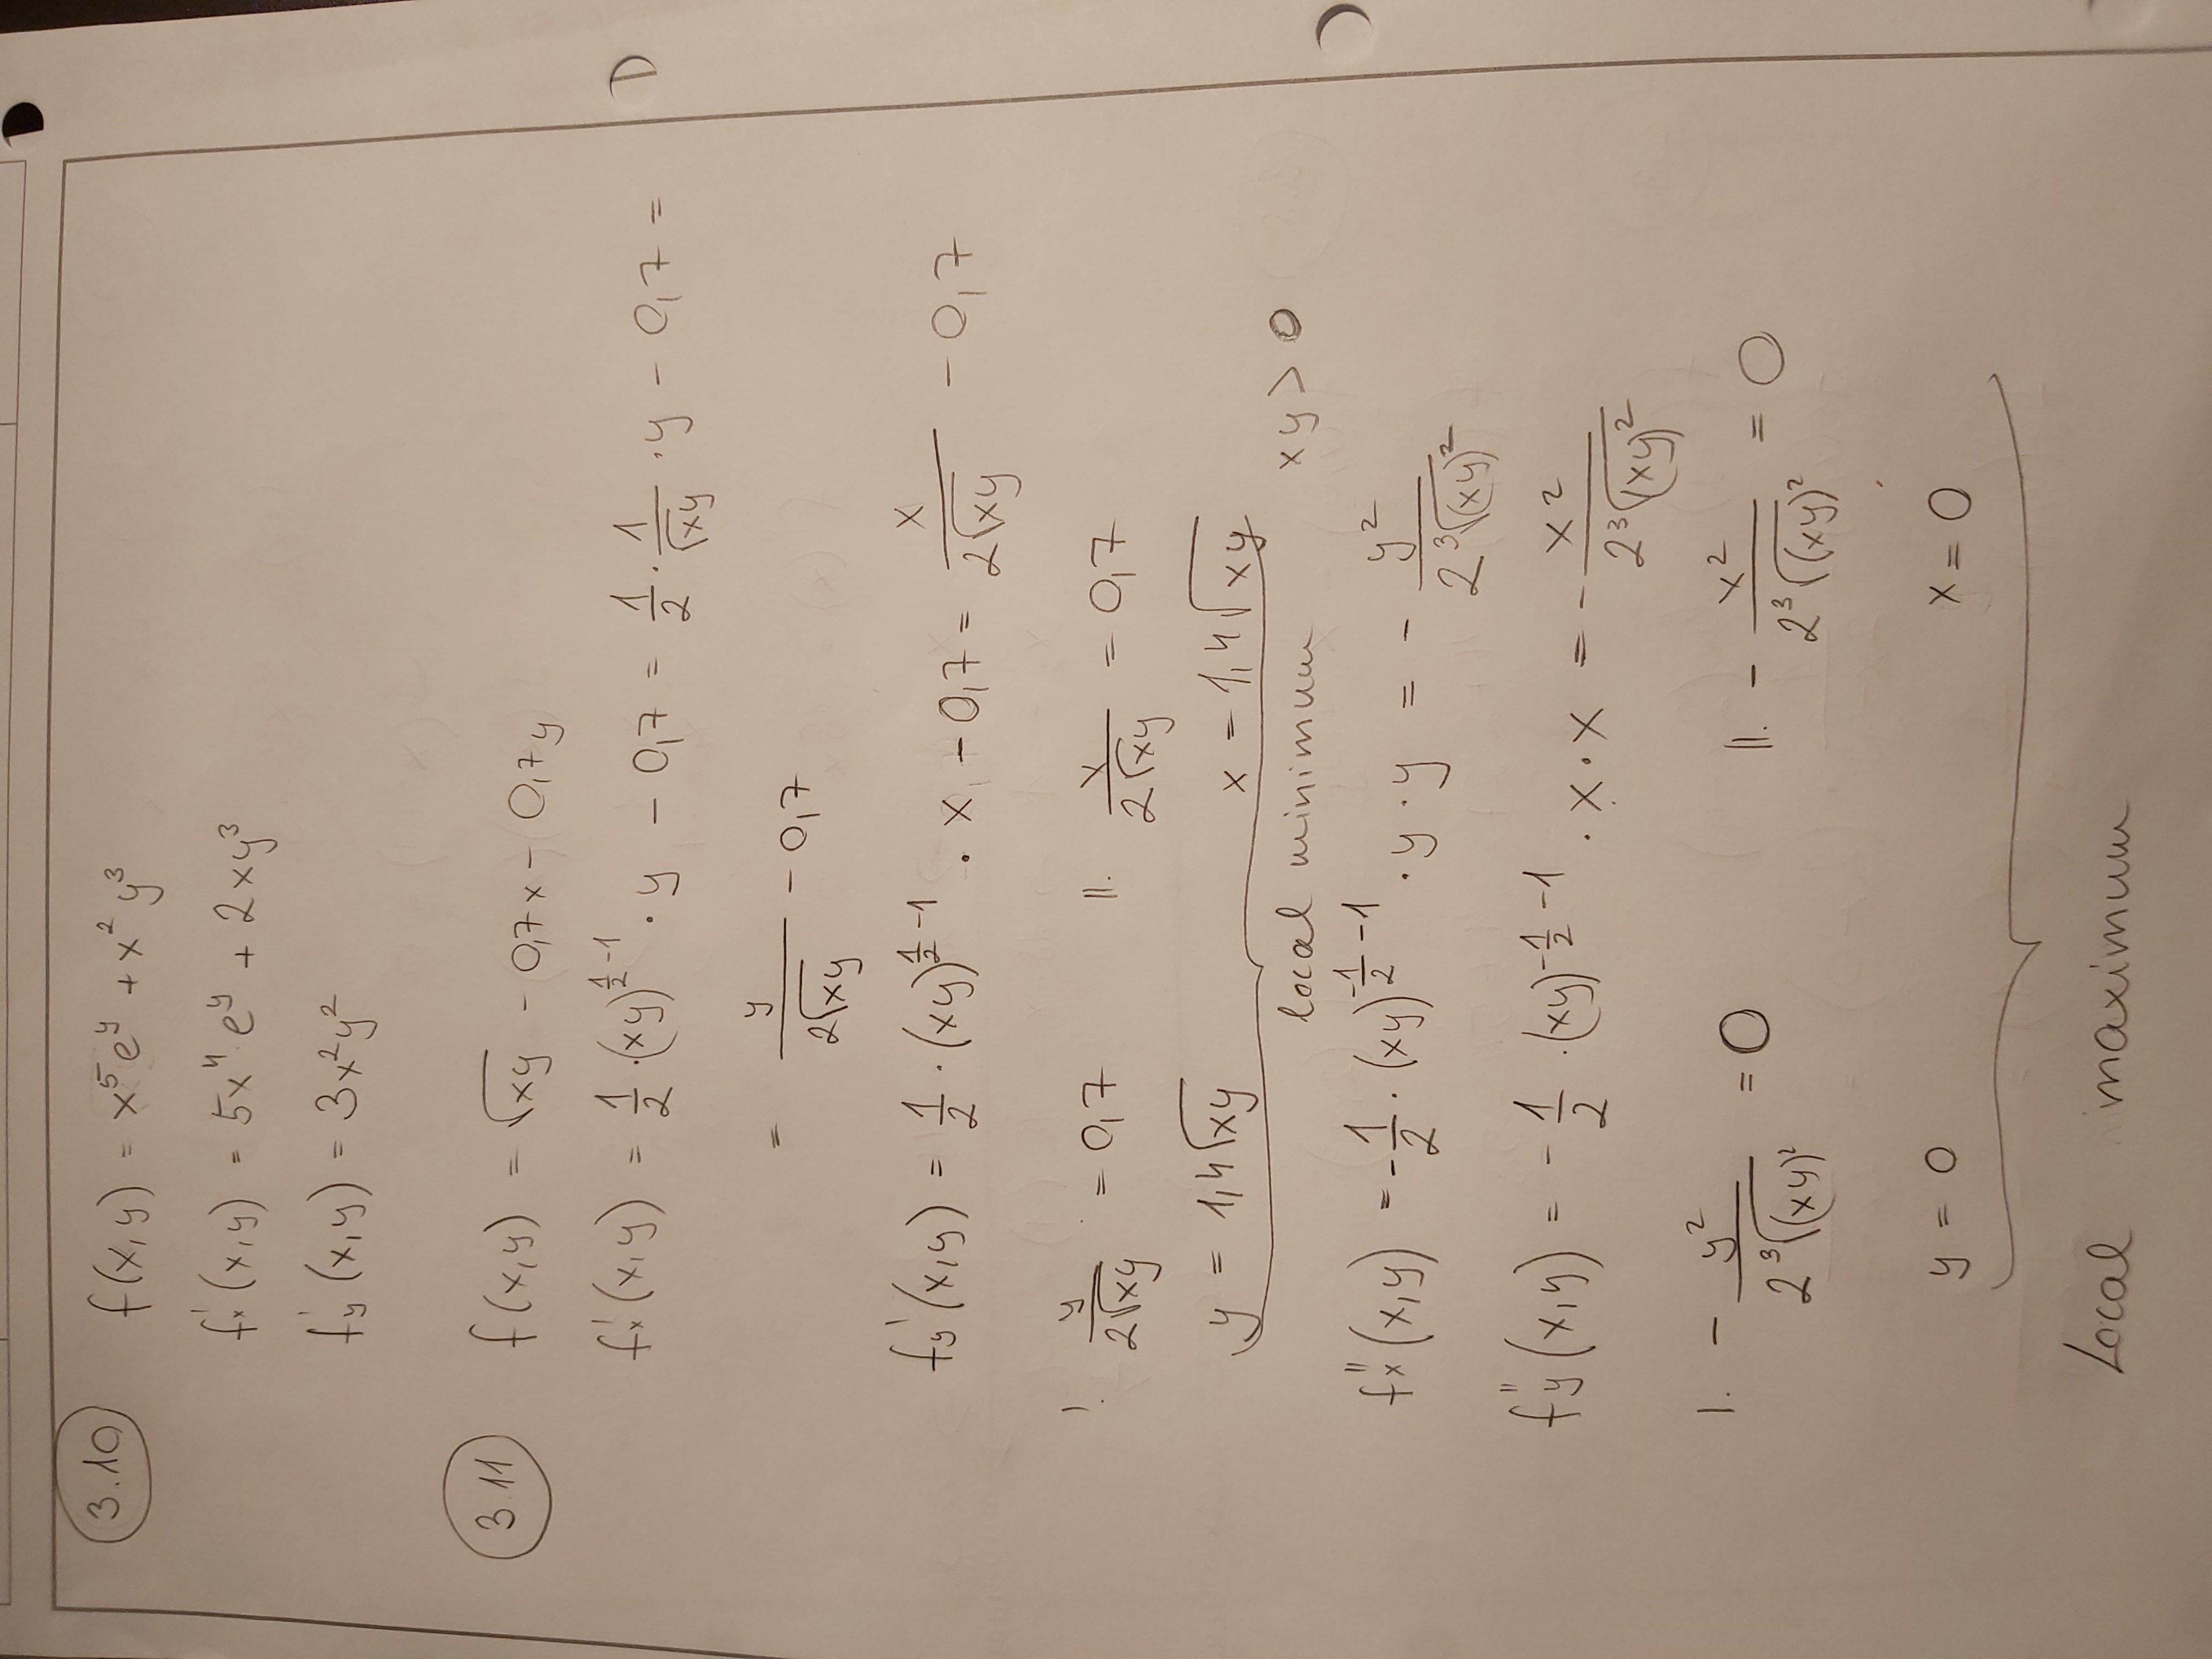 3.10 f(x,y) = x⁵e^y + x² y³
f'x (x,y) = 5x⁴ e^y + 2xy³
f'y (x,y) = 3x²y²
3.11 f(x,y) = √xy - 0,7x - 0,7y
f'x (x,y) = 1/2 · (xy)^(1/2 -1) · y - 0,7 = 1/2 · 1/√xy · y - 0,7 =
= y/(2√xy) - 0,7
f'y (x,y) = 1/2 · (xy)^(1/2 -1) · x - 0,7 = x/(2√xy) - 0,7
I. y/(2√xy) = 0,7 II. x/(2√xy) = 0,7
y = 1,4√xy x = 1,4√xy
local minimum xy > 0
f''x (x,y) = -1/2 · (xy)^(-1/2 -1) · y · y = - y²/(2 ³√(xy)²)
f''y (x,y) = -1/2 · (xy)^(-1/2 -1) · x · x = - x²/(2 ³√(xy)²)
I. - y²/(2 ³√(xy)²) = 0 II. - x²/(2 ³√(xy)²) = 0
y = 0 x = 0
Local maximum